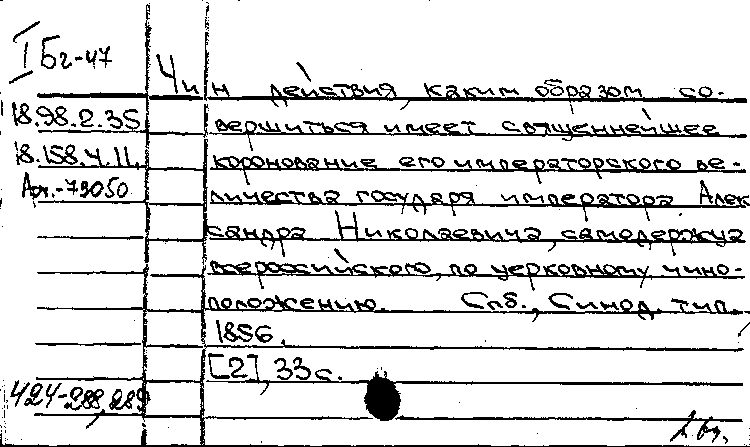 I Бг-47
18.98.2.35
18.158.4.11.
Арх.-79050
Чин действия, каким образом со-
вершиться имеет священнейшее
коронование его императорского ве-
личества государя императора Алек
сандра Николаевича, самодержца
всероссийского, по церковному чино-
положению. Спб., Синод. тип.,
1856.
[2], 33 с.
424-288,289